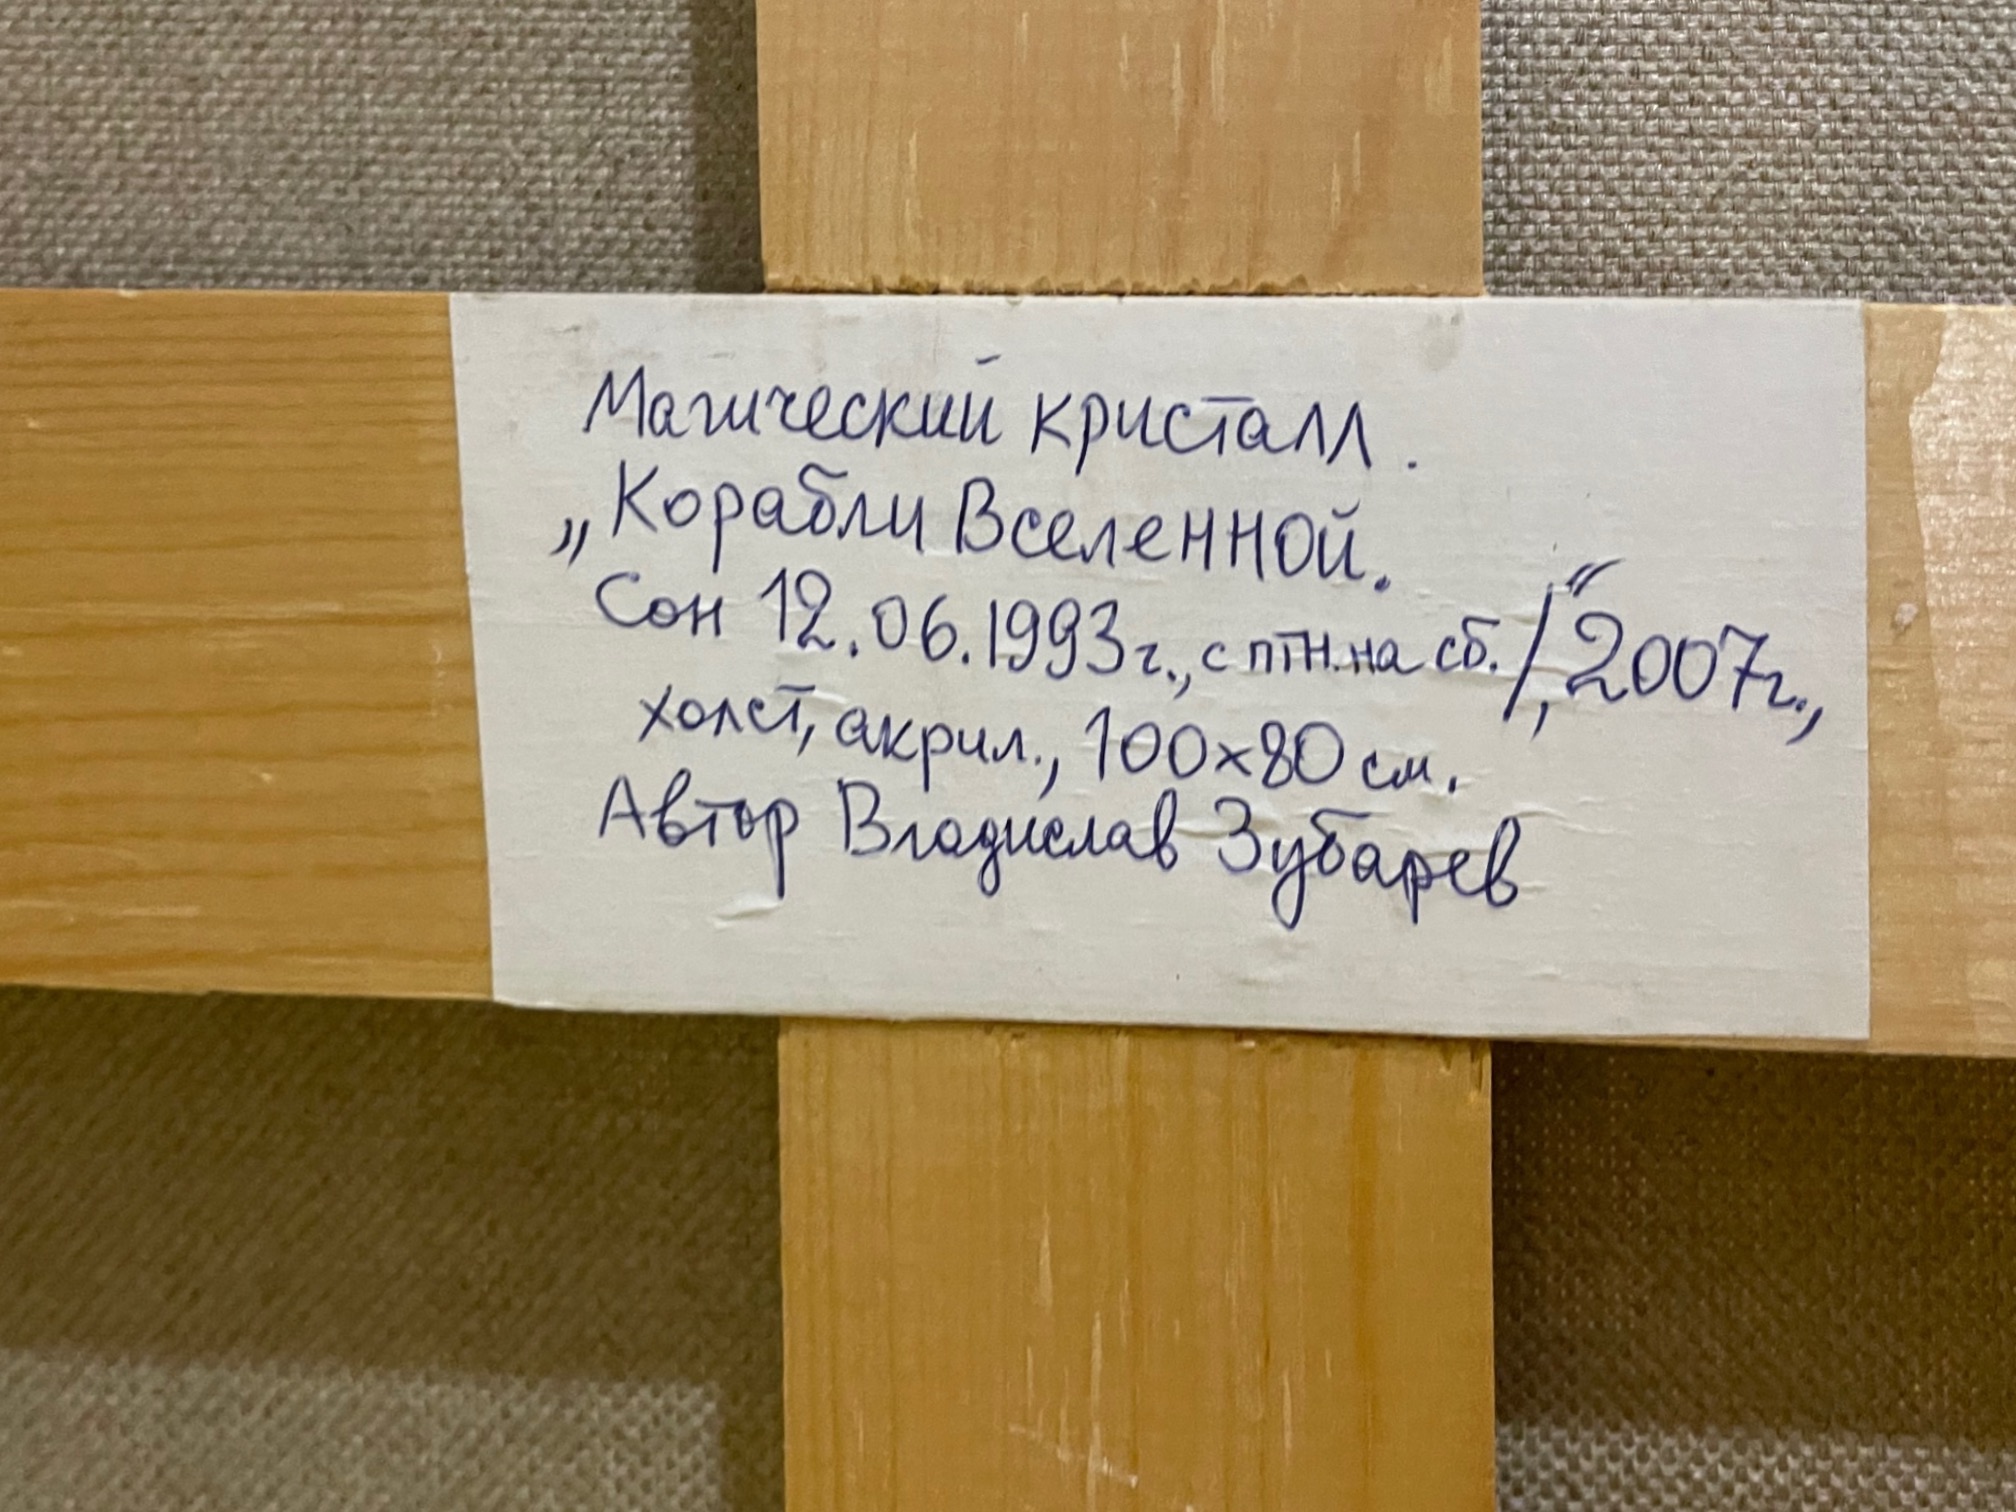 Магический кристалл.
„Корабли Вселенной.
Сон 12.06.1993г., с птн. на сб./“, 2007г.,
холст, акрил., 100х80 см.
Автор Владислав Зубарев